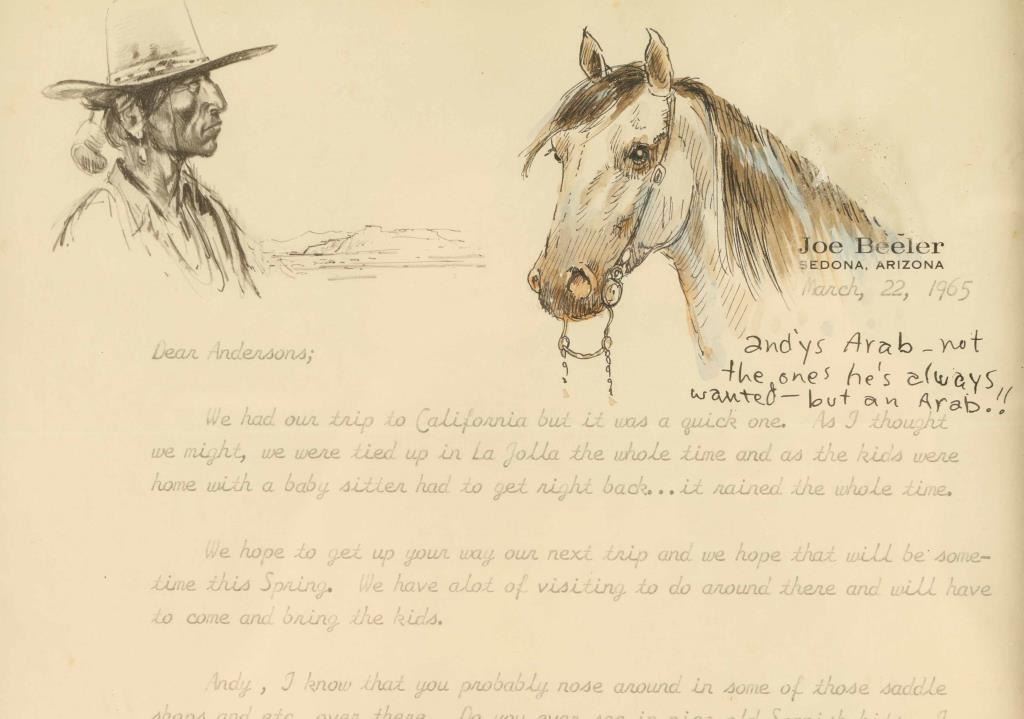 Joe Beeler
SEDONA, ARIZONA
March, 22, 1965
andys Arab - not
the ones he's always
wanted - but an Arab.!!
Dear Andersons;
We had our trip to California but it was a quick one. As I thought
we might, we were tied up in La Jolla the whole time and as the kids were
home with a baby sitter had to get right back...it rained the whole time.
We hope to get up your way our next trip and we hope that will be some-
time this Spring. We have alot of visiting to do around there and will have
to come and bring the kids.
Andy, I know that you probably nose around in some of those saddle
shops and etc. over there. Do you ever see